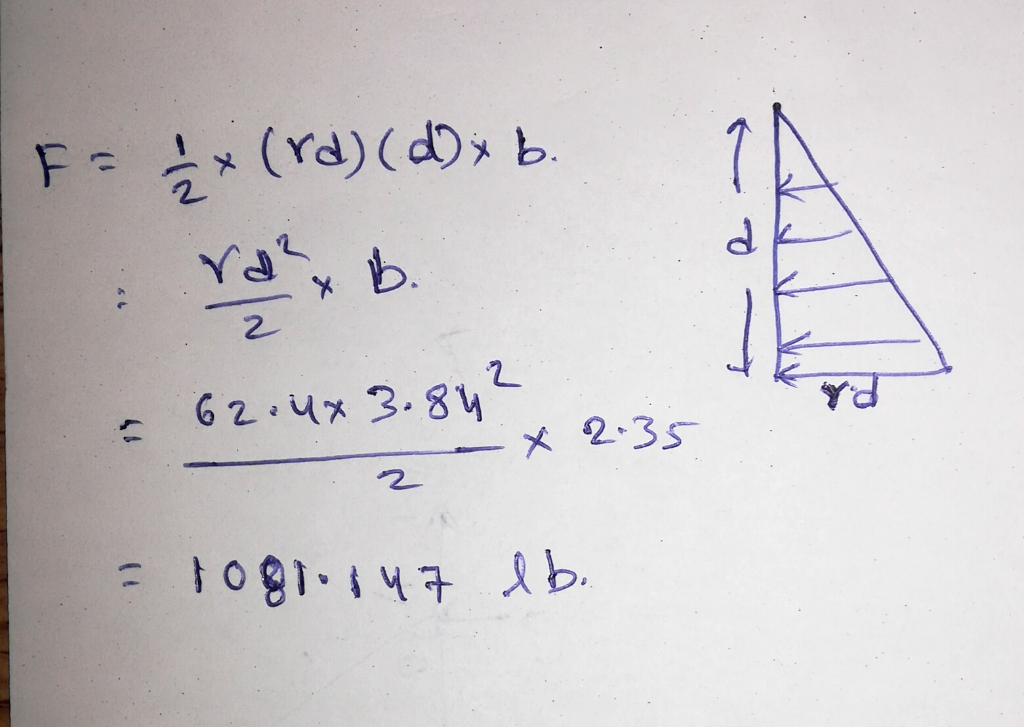 F = 1/2 × (rd)(d) × b.
= rd²/2 × b.
= 62.4 × 3.84²/2 × 2.35
= 1081.147 lb.
d
rd